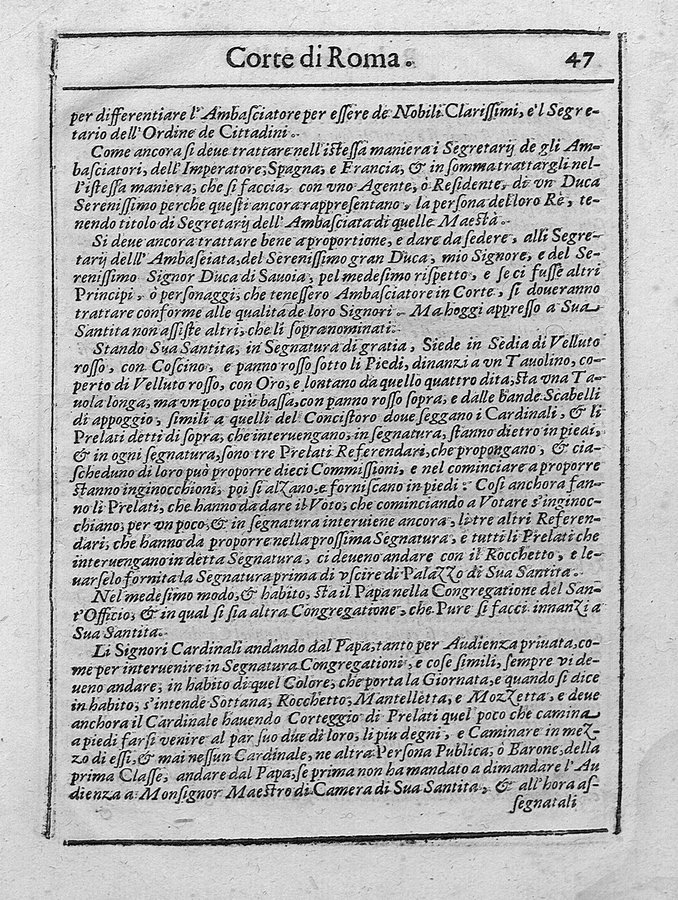 Corte di Roma. 47
per differentiare l'Ambasciatore per essere de Nobili Clarissimi, e'l Segre-
tario dell'Ordine de Cittadini.
Come ancora si deve trattare nell'istessa maniera i Segretarij de gli Am-
basciatori, dell'Imperatore, Spagna, e Francia, & in somma trattargli nel-
l'istessa maniera, che si faccia, con vno Agente, ò Residente, di vn Duca
Serenissimo perche questi ancora rappresentano, la persona del loro Rè, te-
nendo titolo di Segretarij dell'Ambasciata di quelle Maestà.
Si deve ancora trattare bene a proportione, e dare da sedere, alli Segre-
tarij delll'Ambasciata, del Serenissimo gran Duca, mio Signore, e del Se-
renissimo Signor Duca di Sauoia, pel medesimo rispetto, e se ci fusse altri
Principi, ò personaggi, che tenessero Ambasciatore in Corte, si doueranno
trattare conforme alle qualita de loro Signori. Ma hoggi appresso a Sua
Santita non assiste altri, che li sopranominati.
Stando Sua Santita, in Segnatura di gratia, Siede in Sedia di Velluto
rosso, con Coscino, e panno rosso sotto li Piedi, dinanzi a vn Tauolino, co-
perto di Velluto rosso, con Oro, e lontano da quello quattro dita, sta vna Ta-
uola longa, ma vn poco più bassa, con panno rosso sopra, e dalle bande Scabelli
di appoggio, simili a quelli del Concistoro doue seggano i Cardinali, & li
Prelati detti di sopra, che interuengano, in segnatura, stanno dietro in piedi,
& in ogni segnatura, sono tre Prelati Referendari, che propongano, & cia-
scheduno di loro può proporre dieci Commissioni, e nel cominciare a proporre
stanno inginocchioni, poi si alzano, e forniscano in piedi: Cosi anchora fan-
no li Prelati, che hanno da dare il Voto, che cominciando a Votare s'inginoc-
chiano, per vn poco, & in segnatura interuiene ancora, li tre altri Referen-
dari, che hanno da proporre nella prossima Segnatura, e tutti li Prelati che
interuengano in detta Segnatura, ci deueno andare con il Rocchetto, e le-
uarselo fornita la Segnatura prima di vscire di Palazzo di Sua Santita.
Nel medesimo modo, & habito, sta il Papa nella Congregatione del San-
t'Officio, & in qual si sia altra Congregatione, che Pure si facci innanzi a
Sua Santita.
Li Signori Cardinali andando dal Papa, tanto per Audienza priuata, co-
me per interuenire in Segnatura Congregationi, e cose simili, sempre vi de-
ueno andare, in habito di quel Colore, che porta la Giornata, e quando si dice
in habito, s'intende Sottana, Rocchetto, Mantelletta, e Mozzetta, e deue
anchora il Cardinale hauendo Corteggio di Prelati quel poco che camina
a piedi farsi venire al par suo due di loro, li piu degni, e Caminare in mez-
zo di essi, & mai nessun Cardinale, ne altra Persona Publica, ò Barone, della
prima Classe, andare dal Papa, se prima non ha mandato a dimandare l'Au
dienza a Monsignor Maestro di Camera di Sua Santita, & all'hora as-
segnatali